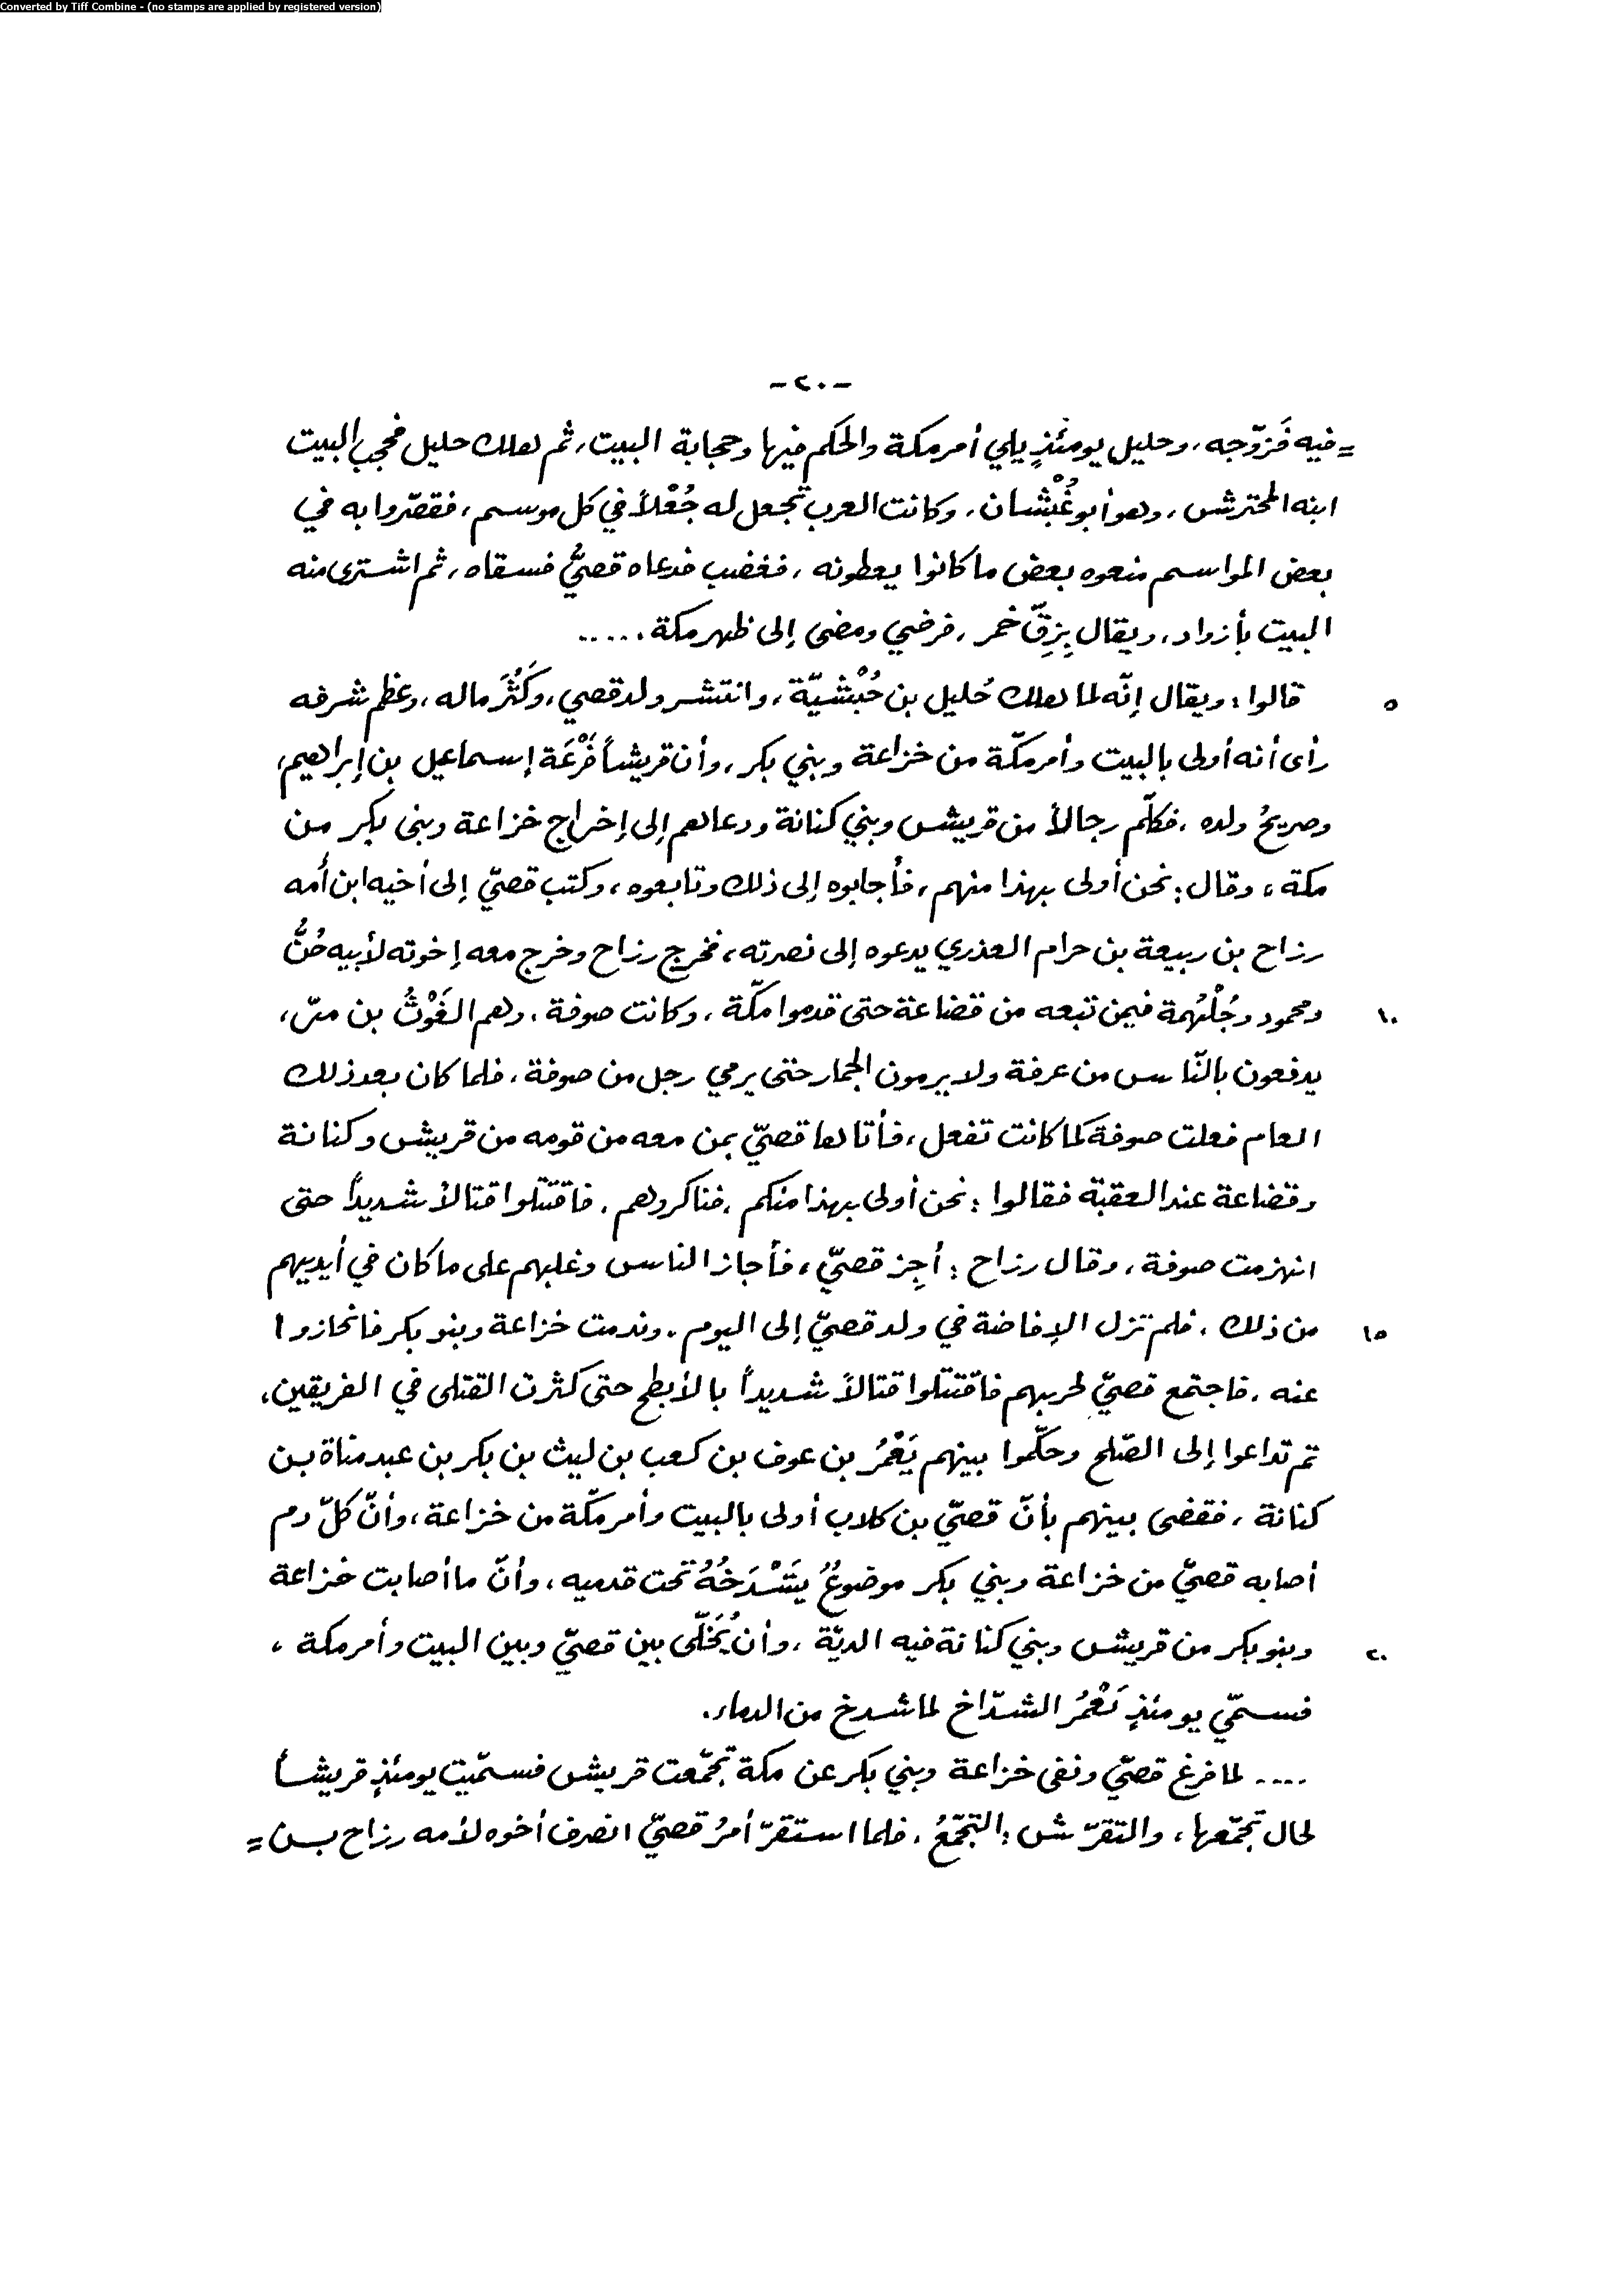 Converted by Tiff Combine - (no stamps are applied by registered version)
-٢٠-
= فيه فَزوّجه، وحليل يومئذٍ يلي أمر مكة والحكم فيها وحجابة البيت، ثم هلك حليل فحجب البيت
ابنه المحترش، وهو أبو غُبْشان، وكانت العرب تجعل له جُعْلاً في كل موسم، فقصّروا به في
بعض المواسم منعوه بعض ما كانوا يعطونه، فغضب فدعاه قصيُّ فسقاه، ثم اشترى منه
البيت بأزواد، ويقال بِزِقّ خمر، فرضي ومضى إلى ظهر مكة .....
٥ قالوا: ويقال إنّه لما هلك حُليل بن حُبْشيّة، وانتشر ولد قصي، وكَثُرَ ماله، وعظم شرفه
رأى أنه أولى بالبيت وأمر مكّة من خزاعة وبني بكر، وأن قريشاً فَرْعَة إسماعيل بن إبراهيم،
وصريحُ ولده، فكلّم رجالاً من قريش وبني كنانة ودعاهم إلى إخراج خزاعة وبنى بكر من
مكة، وقال: نحن أولى بهذا منهم، فأجابوه إلى ذلك وتابعوه، وكتب قصيّ إلى أخيه ابن أمه
رزاح بن ربيعة بن حرام العذري يدعوه إلى نصرته، فخرج رزاح وخرج معه إخوته لأبيه حُنُّ
١٠ ومحمود وجُلْهُمة فيمن تبعه من قضاعة حتى قدموا مكّة، وكانت صوفة، وهم الغَوْثُ بن مرّ،
يدفعون بالنّاس من عرفة ولا يرمون الجمار حتى يرمي رجل من صوفة، فلما كان بعد ذلك
العام فعلت صوفة كما كانت تفعل، فأتاها قصيّ بمن معه من قومه من قريش وكنانة
وقضاعة عند العقبة فقالوا: نحن أولى بهذا منكم، فناكروهم، فاقتتلوا قتالاً شديداً حتى
انهزمت صوفة، وقال رزاح: أجِز قصيّ، فأجاز الناس وغلبهم على ما كان في أيديهم
١٥ من ذلك، فلم تزل الإفاضة في ولد قصيّ إلى اليوم. وندمت خزاعة وبنو بكر فانحازوا
عنه، فاجتمع قصيّ لحربهم فاقتتلوا قتالاً شديداً بالأبطح حتى كثرت القتلى في الفريقين،
ثم تداعوا إلى الصّلح وحكّموا بينهم يَعْمُرَ بن عوف بن كعب بن ليث بن بكر بن عبد مناة بن
كنانة، فقضى بينهم بأنّ قصيّ بن كلاب أولى بالبيت وأمر مكّة من خزاعة، وأنّ كلّ دم
أصابه قصيّ من خزاعة وبني بكر موضوعٌ يَتَشْدَخُهُ تحت قدميه، وأنّ ما أصابت خزاعة
٢٠ وبنو بكر من قريش وبني كنانة فيه الديّة، وأن يُخَلّى بين قصيّ وبين البيت وأمر مكة،
فسمّي يومئذٍ يَعْمُرُ الشدّاخ لما شدخ من الدماء.
.... لما فرغ قصيّ ونفى خزاعة وبني بكر عن مكة تجمّعت قريش فسمّيت يومئذٍ قريشاً
لحال تجمّعها، والتقرّش: التجمّعُ، فلما استقرّ أمرُ قصيّ انصرف أخوه لأمه رزاح بن =